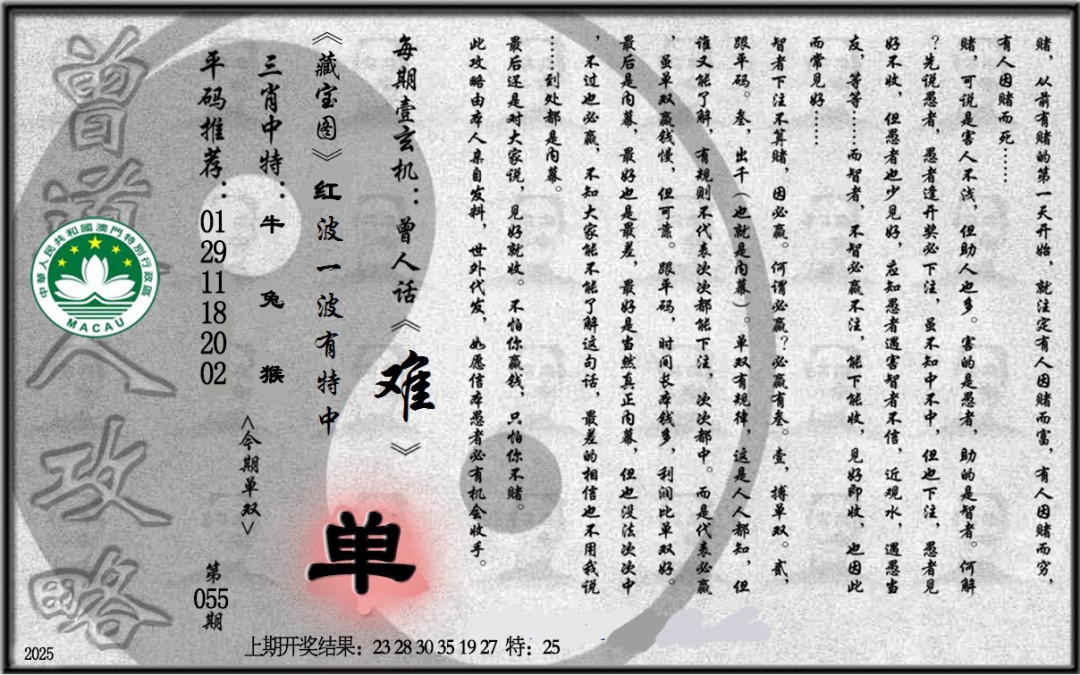 赌，从前有赌的第一天开始，就注定有人因赌而富，有人因赌而穷，
有人因赌而死……
赌，可说是害人不浅，但助人也多。害的是愚者，助的是智者。何解
？先说愚者，愚者逢开奖必下注，虽不知中不中，但也下注，愚者见
好不收，但愚者也少见好，应知愚者遇害智者不信，近观水，遇愚当
友，等等……而智者，不智必赢不注，能下能收，见好即收，也因此
而常见好……
智者下注不算赌，因必赢。何谓必赢？必赢有叁。壹，搏单双。贰，
跟平码。叁，出千（也就是内幕）。单双有规律，这是人人都知，但
谁又能了解，有规则不代表次次都能下注，次次都中。而是代表必赢
，虽单双赢钱慢，但可靠。跟平码，时间长本钱多，利润比单双好。
最后是内幕，最好也是最差，最好是当然真正内幕，但也没法次次中
，不过也必赢，不知大家能不能了解这句话，最差的相信也不用我说
……到处都是内幕。
最后还是对大家说，见好就收。不怕你赢钱，只怕你不赌。
此攻略由本人亲自发料，世外代发，如愿信本愚者必有机会收手。
每期壹玄机：曾人话《难》
《藏宝图》红波一波有特中
单
三肖中特：牛 兔 猴
<今期单双>
平码推荐：
01
29
11
18
20
02
第
055
期
曾道人攻略
中華人民共和國澳門特別行政區
MACAU
2025
上期开奖结果：23 28 30 35 19 27 特：25